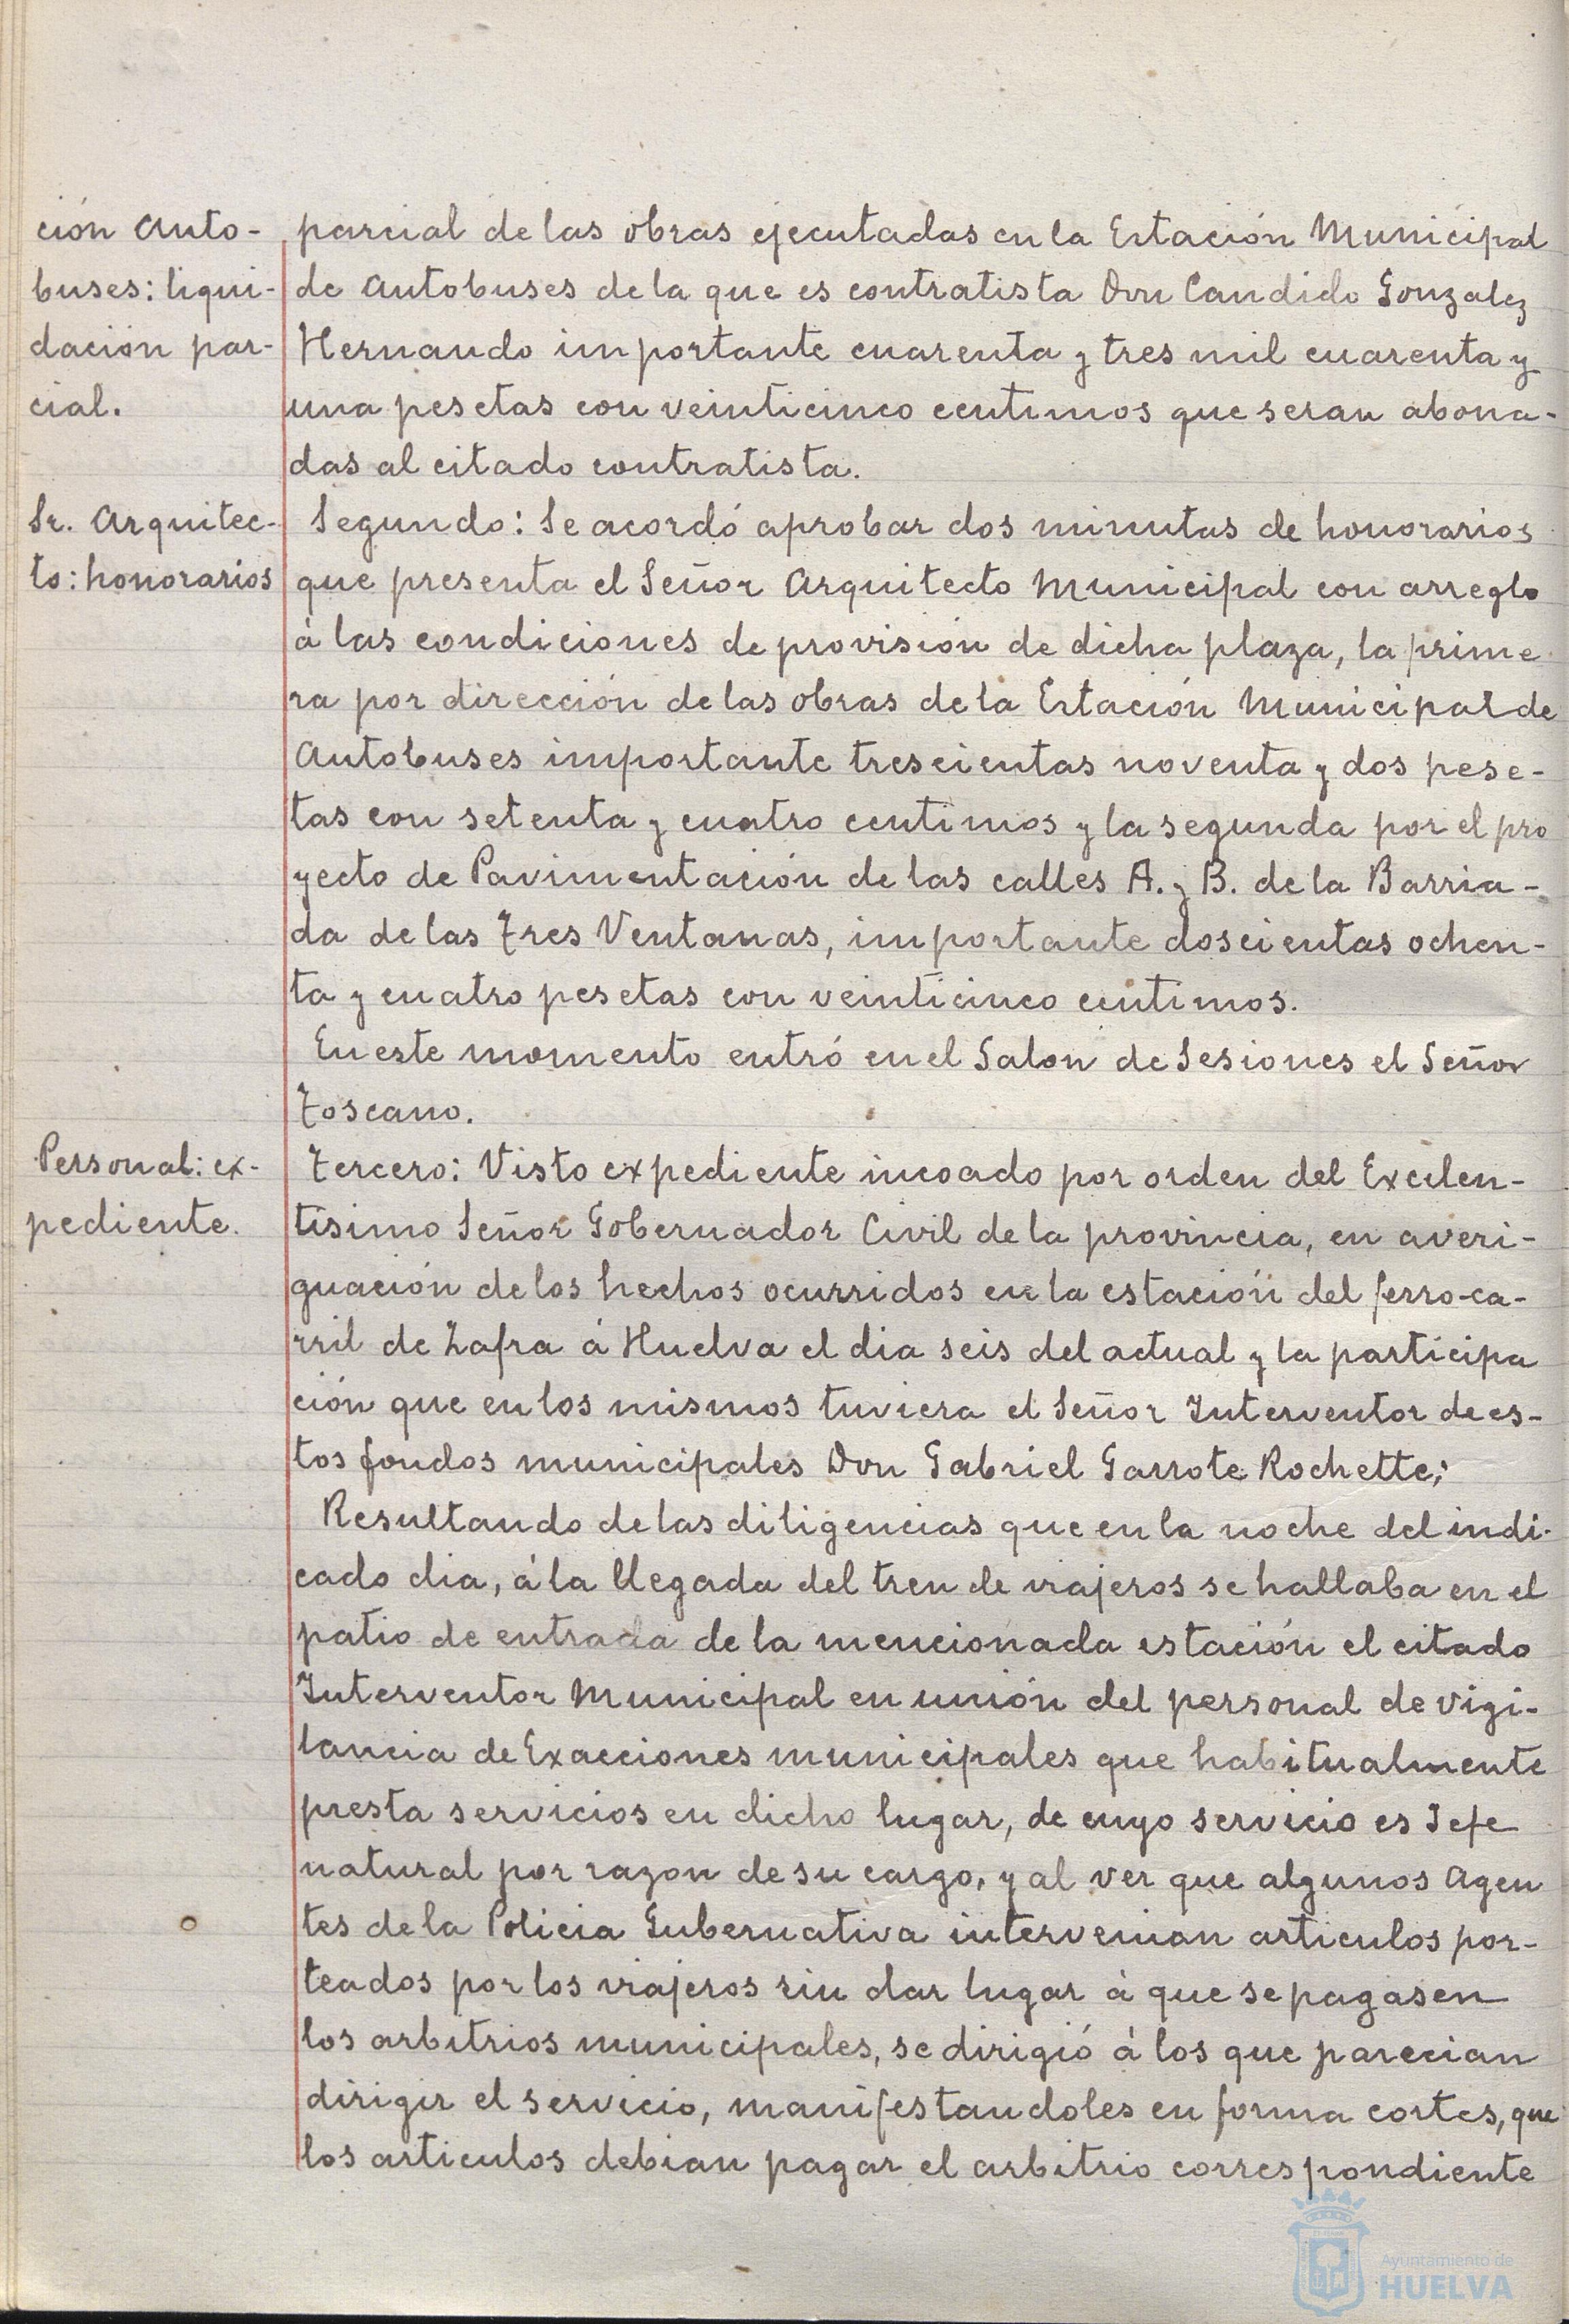 ción Auto-
buses: liqui-
dación par-
cial.
parcial de las obras ejecutadas en la Estación Municipal
de Autobuses de la que es contratista Don Candido Gonzalez
Hernando importante cuarenta y tres mil cuarenta y
una pesetas con veinticinco centimos que seran abona-
das al citado contratista.
Sr. Arquitec-
to: honorarios
Segundo: Se acordó aprobar dos minutas de honorarios
que presenta el Señor Arquitecto Municipal con arreglo
á las condiciones de provisión de dicha plaza, la prime
ra por dirección de las obras de la Estación Municipal de
Autobuses importante trescientas noventa y dos pese-
tas con setenta y cuatro centimos y la segunda por el pro
yecto de Pavimentación de las calles A. y B. de la Barria-
da de las Tres Ventanas, importante doscientas ochen-
ta y cuatro pesetas con veinticinco centimos.
En este momento entró en el Salon de Sesiones el Señor
Toscano.
Personal: ex-
pediente.
Tercero: Visto expediente incoado por orden del Excelen-
tísimo Señor Gobernador Civil de la provincia, en averi-
guación de los hechos ocurridos en la estación del ferro-ca-
rril de Zafra á Huelva el dia seis del actual y la participa
ción que en los mismos tuviera el Señor Interventor de es-
tos fondos municipales Don Gabriel Garrote Rochette;
Resultando de las diligencias que en la noche del indi-
cado dia, á la llegada del tren de viajeros se hallaba en el
patio de entrada de la mencionada estación el citado
Interventor Municipal en unión del personal de vigi-
lancia de Exacciones municipales que habitualmente
presta servicios en dicho lugar, de cuyo servicio es Jefe
natural por razon de su cargo, y al ver que algunos Agen
tes de la Policia Gubernativa intervenian articulos por-
teados por los viajeros sin dar lugar á que se pagasen
los arbitrios municipales, se dirigió á los que parecian
dirigir el servicio, manifestandoles en forma cortes, que
los articulos debian pagar el arbitrio correspondiente
Ayuntamiento de
HUELVA